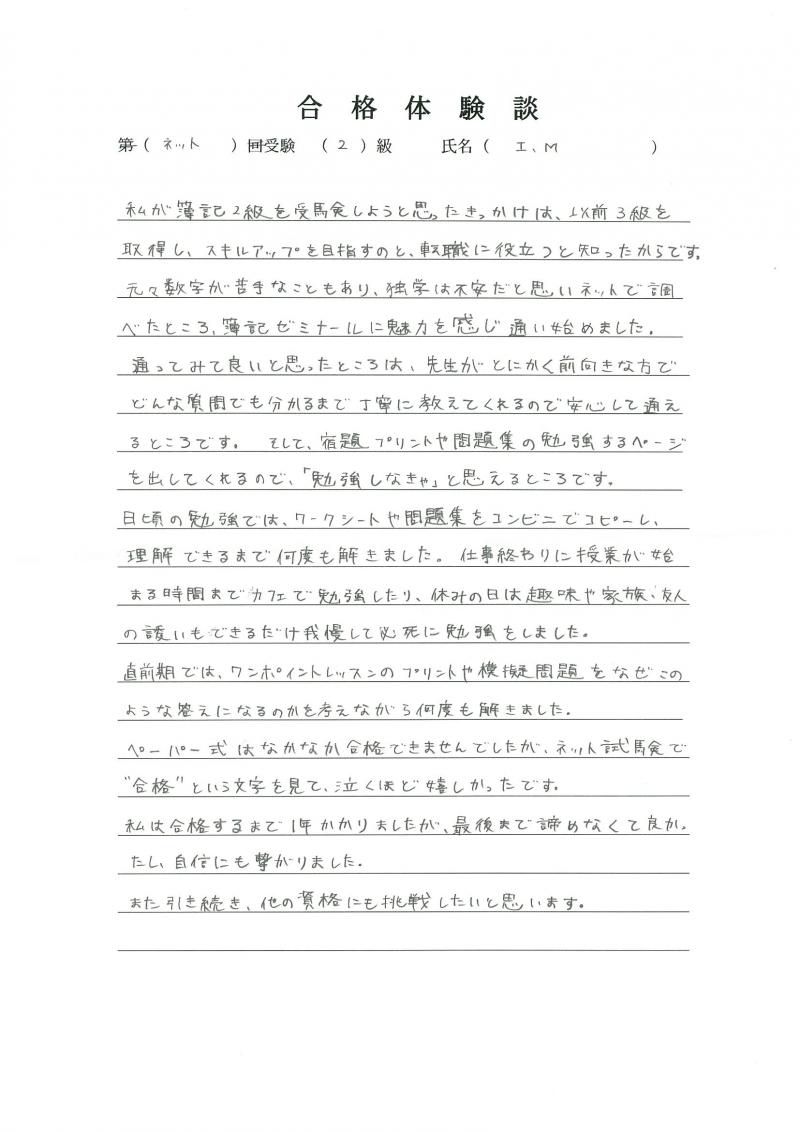 合格体験談
第（ ネット ）回受験 （ 2 ）級 氏名（ I、M ）
私が簿記2級を受験しようと思ったきっかけは、以前3級を
取得し、スキルアップを目指すのと、転職に役立つと知ったからです。
元々数字が苦手なこともあり、独学は不安だと思いネットで調
べたところ、簿記ゼミナールに魅力を感じ通い始めました。
通ってみて良いと思ったところは、先生がとにかく前向きな方で
どんな質問でも分かるまで丁寧に教えてくれるので安心して通え
るところです。 そして、宿題プリントや問題集の勉強するページ
を出してくれるので、「勉強しなきゃ」と思えるところです。
日頃の勉強では、ワークシートや問題集をコンビニでコピーし、
理解できるまで何度も解きました。仕事終わりに授業が始
まる時間までカフェで勉強したり、休みの日は趣味や家族・友人
の誘いもできるだけ我慢して必死に勉強をしました。
直前期では、ワンポイントレッスンのプリントや模擬問題をなぜこの
ような答えになるのかを考えながら何度も解きました。
ペーパー式はなかなか合格できませんでしたが、ネット試験で
"合格"という文字を見て、泣くほど嬉しかったです。
私は合格するまで1年かかりましたが、最後まで諦めなくて良かっ
たし、自信にも繋がりました。
また引き続き、他の資格にも挑戦したいと思います。